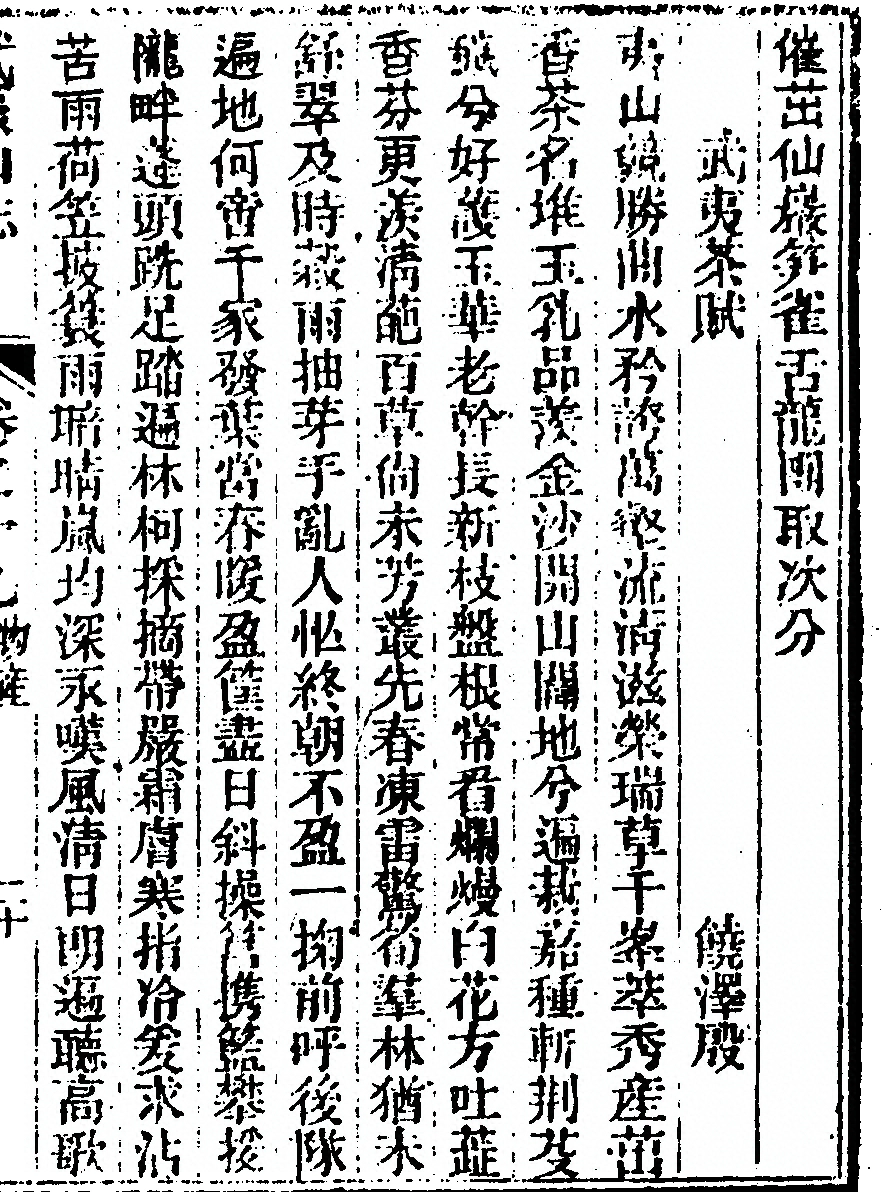 催茁仙巖筍雀舌龍團取次分
武夷茶賦 饒澤殷
夷山競勝曲水矜誇萬壑流清滋榮瑞草千峯萃秀産茁
香茶名堆玉乳品羨金沙開山闢地兮遍栽嘉種斬荆芟
蕪兮好護玉華老幹長新枝盤根常看爛熳白花方吐蕋
香芬更羨清葩百草尚未芳叢先春凍雷驚筍羣林猶未
舒翠及時穀雨抽芽手亂人忙終朝不盈一掬前呼後隊
遍地何啻千家發葉當春暖盈筐盡日斜操筐携籃攀援
隴畔蓬頭跣足踏遍林柯採摘帶嚴霜膚寒指冷爰求沾
苦雨荷笠披簑雨暗晴嵐均深永嘆風清日朗遍聽高歌
武夷山志 卷之十九物産 二十